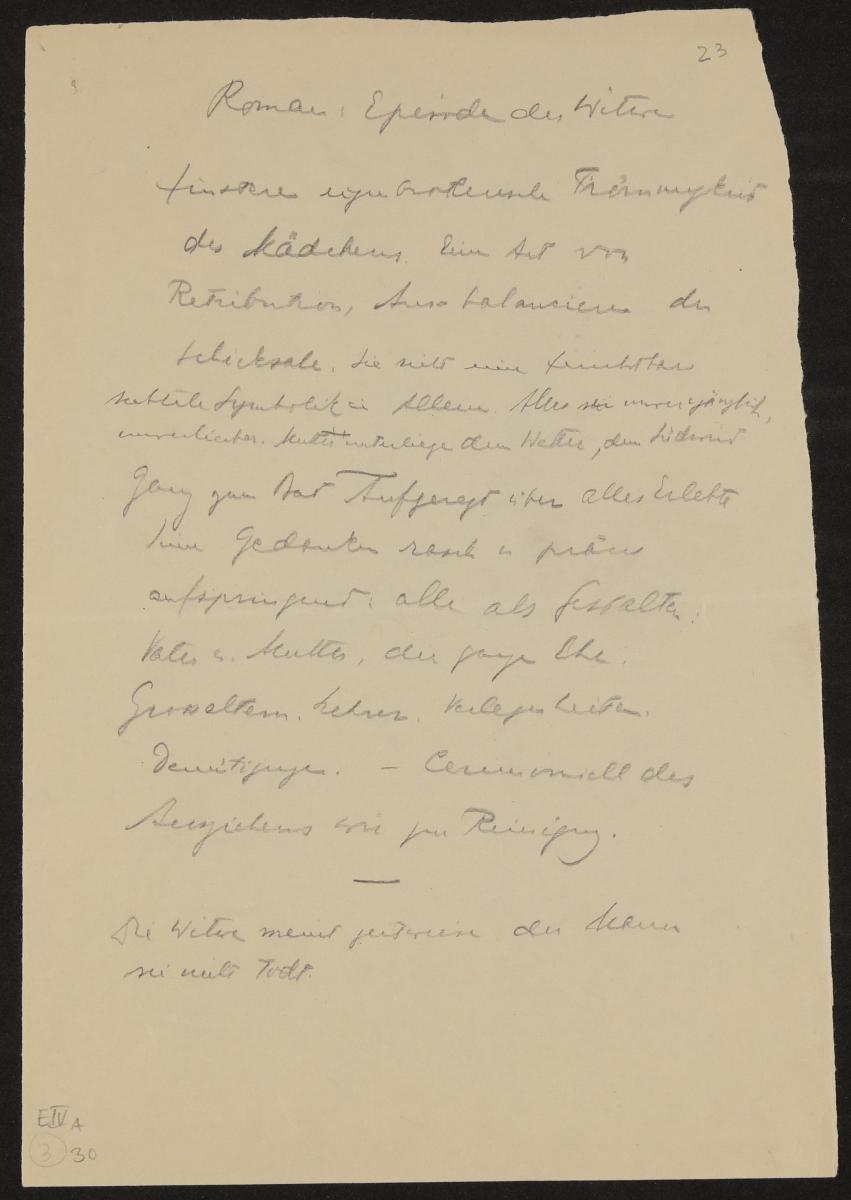 23
Roman: Episode der Witwe
finstere eigenbrötlerische Frömmigkeit
des Mädchens. Eine Art von
Retribution, Ausbalancieren der
Schicksale. Sie sieht eine furchtbar
subtile Symbolik in Allem. Alles sei unvergänglich,
unverlierbar. Mutter unterliege dem Wetter, dem Südwind
Gang zum Bad Aufgeregt über alles Erlebte
seine Gedanken rasch u präcis
aufspringend: alle als Gestalten:
Vater u. Mutter, die ganze Ehe.
Grosseltern. Lehrer. Verlegenheiten.
Demütigungen. — Ceremoniell des
Ausziehens wie zur Reinigung.
—
Die Witwe meint zeitweise der Mann
sei nicht todt.
E IV A
3 30